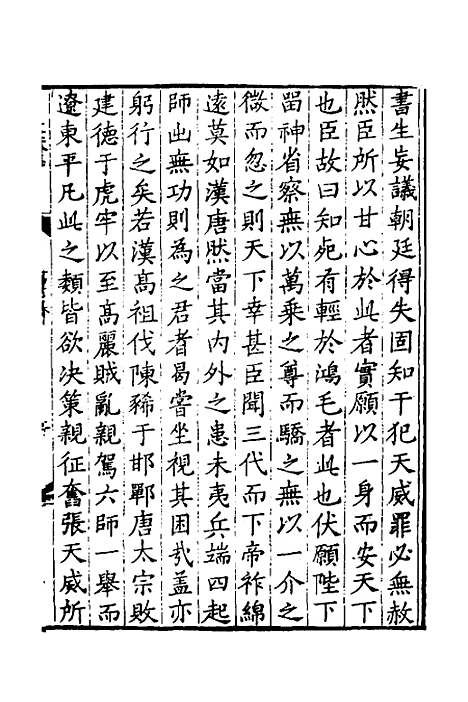 書生妄議朝廷得失固知干犯天威罪必無赦
然臣所以甘心於此者實願以一身而安天下
也臣故曰知死有輕於鴻毛者此也伏願陛下
留神省察無以萬乘之尊而驕之無以一介之
微而忽之則天下幸甚臣聞三代而下帝祚綿
遠莫如漢唐然當其内外之患未夷兵端四起
師出無功則為之君者曷嘗坐視其困㢤盖亦
躬行之矣若漢高祖伐陳豨于邯鄲唐太宗敗
建德于虎牢以至高麗賊亂親駕六師一舉而
遼東平凡此之類皆欲决策親征奮張天威所